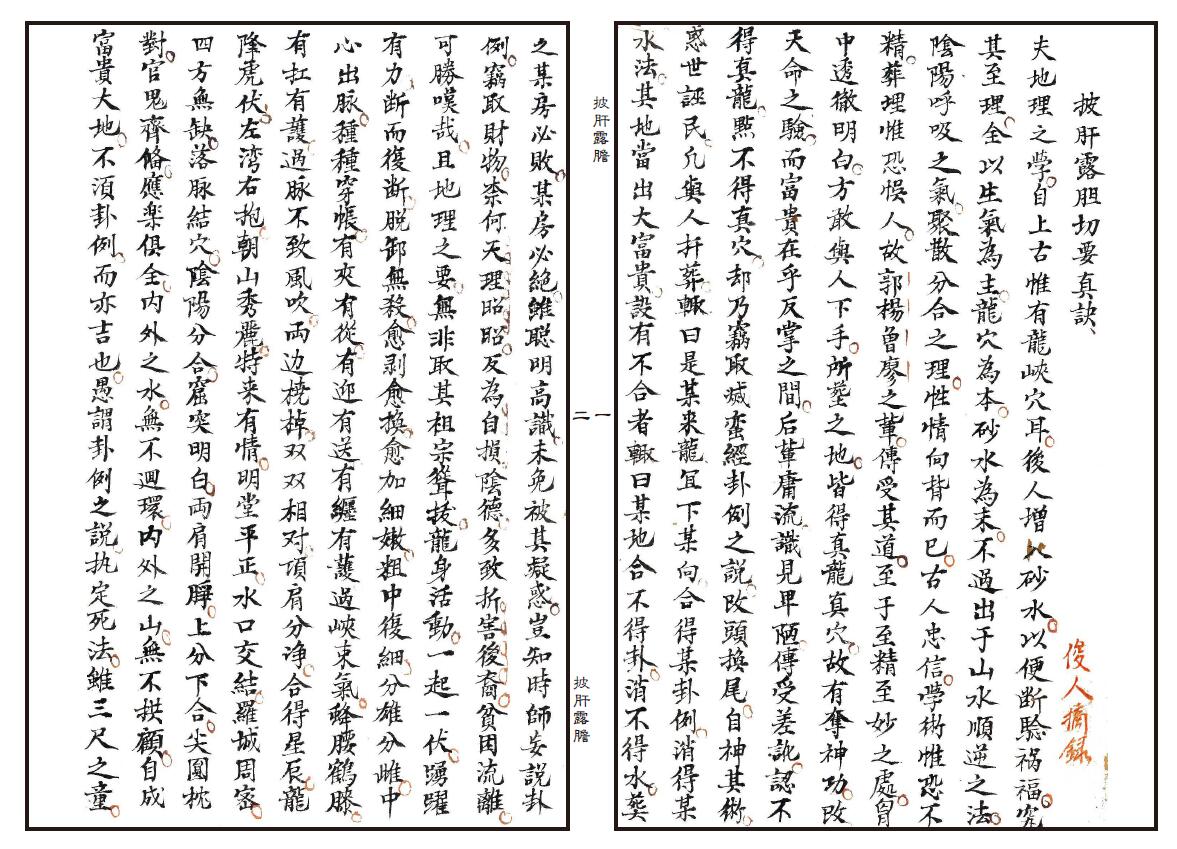 披肝露胆切要真訣、
俊人摘録
夫地理之學自上古惟有龍峽穴耳後人增以砂水以便断驗祸福究
其至理全以生氣為主龍穴為本砂水為末不過出于山水順逆之法
陰陽呼吸之氣聚散分合之理性情向背而已古人忠信學術惟恐不
精葬埋惟恐悞人故郭楊曾廖之輩傳受其道至于至精至妙之處胷
中透徹明白方敢與人下手所塟之地皆得真龍真穴故有奪神功改
天命之驗而富貴在乎反掌之間后輩庸流識見卑陋傳受差訛認不
得真龍點不得真穴却乃竊取㓕蛮經卦例之説改頭換尾自神其術
惑世誣民凡與人扦葬輙曰是某来龍冝下某向合得某卦例消得某
水法其地當出大富貴設有不合者輙曰某地合不得卦消不得水葬
披肝露膽
一
二
披肝露膽
之某房必敗某房必絕雖聪明高識未免被其凝惑豈知時師妄説卦
例竊取財物柰何天理昭昭反為自損陰德多致折害後裔貧困流離
可勝嘆哉且地理之要無非取其祖宗聳拔龍身活動一起一伏踴躍
有力断而復断脱卸無殺愈剥愈換愈加細嫩粗中復細分雄分雌中
心出脉種種穿帳有夾有從有迎有送有纒有護過峽束氣蜂腰鶴膝
有扛有護過脉不致風吹両边橈棹双双相对頂肩分净合得星辰龍
降虎伏左湾右抱朝山秀麗特来有情明堂平正水口交結羅城周密
四方無缺落脉結穴陰陽分合窟突明白両肩開睜上分下合尖圓枕
對官鬼齊俻應楽俱全内外之水無不迴環内外之山無不拱顧自成
富貴大地不湏卦例而亦吉也愚謂卦例之説执定死法雖三尺之童